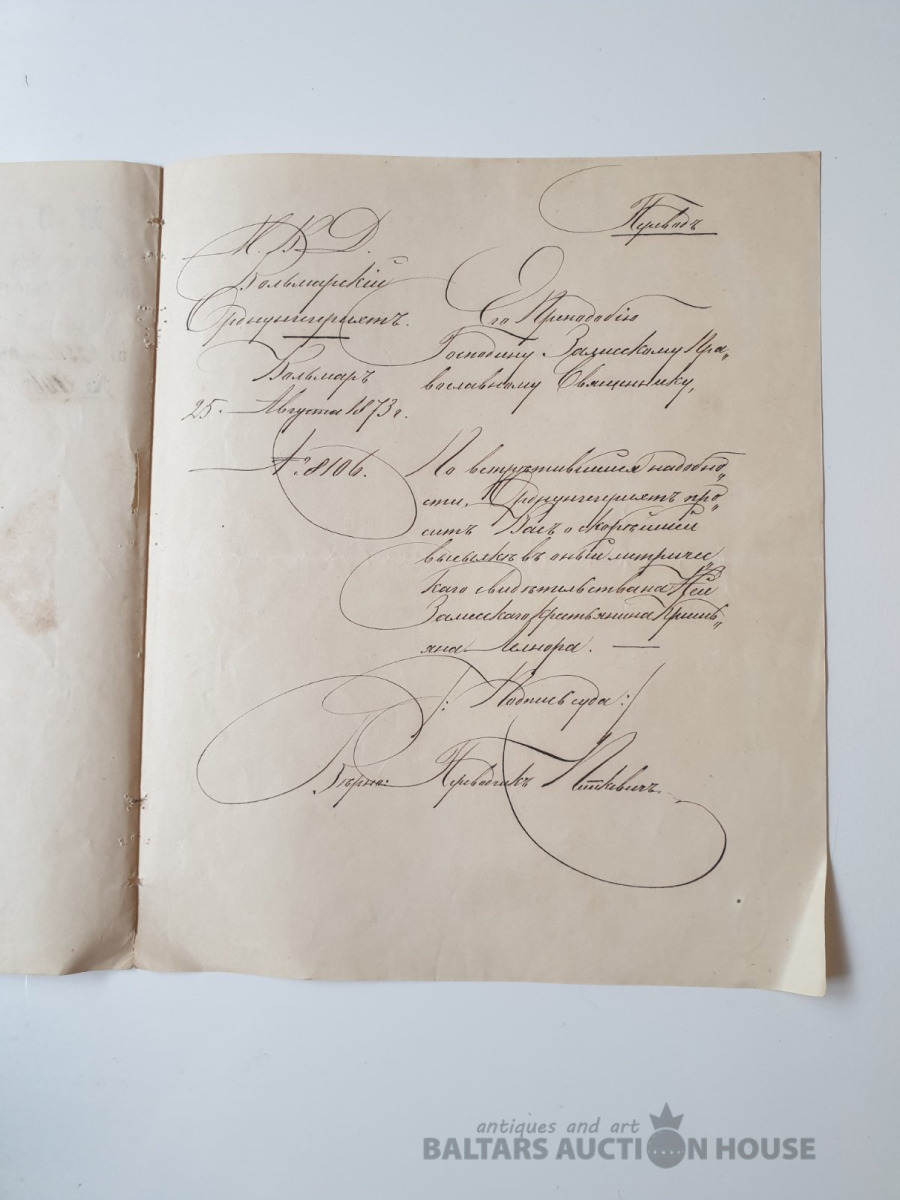 Переводъ
М. В. Д.
Вольмарскій
Орднунгсгерихтъ.
Вольмаръ
25. Августа 1873 г.
№ 8106.
Его Преподобію
Господину Залисскому Пра„
вославному Священнику,
По встрѣтившейся надобно„
сти, Орднунгсгерихтъ про„
ситъ Васъ о скорѣйшей
высылкѣ въ оный метричес„
каго свидѣтельства на
Залисскаго крестьянина
яна
/: Подпись суда :/
Вѣрно: Переводчикъ
antiques and art
BALTARS AUCTION HOUSE